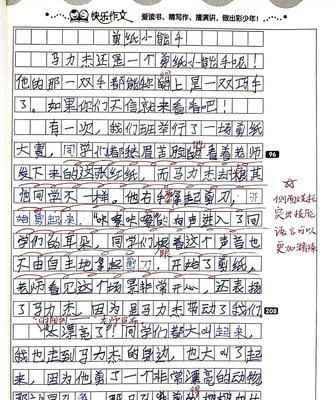 快乐作文 爱读书、精写作、擅演讲，做出彩少年！
剪纸小能手
马力杰还是一个剪纸小能手呢！
他的那一双手都能称的上是一双巧手
了。如果你们不信就来看看吧！
有一次，我们班举行了一场剪纸
大赛，同学们都愁眉苦脸的看着老师
发下来的这张红纸，而马力杰却和其
他同学不一样。他右手拿起剪刀，开
始剪起来，“咔嚓咔嚓”的声进入了同
学们的耳朵，同学们接着这个声音也
不由自主地拿起剪刀，开始了剪纸。
老师看见这个场景非常开心，还表扬
了马力杰，因为是马力杰带动了我们
“太漂亮了！”同学们都大叫起来，
我也走到马力杰的身边，也大叫了起
来，因为他剪了一个非常漂亮的动物
96
208
侧面
突出技能
语言可以
更加精炼